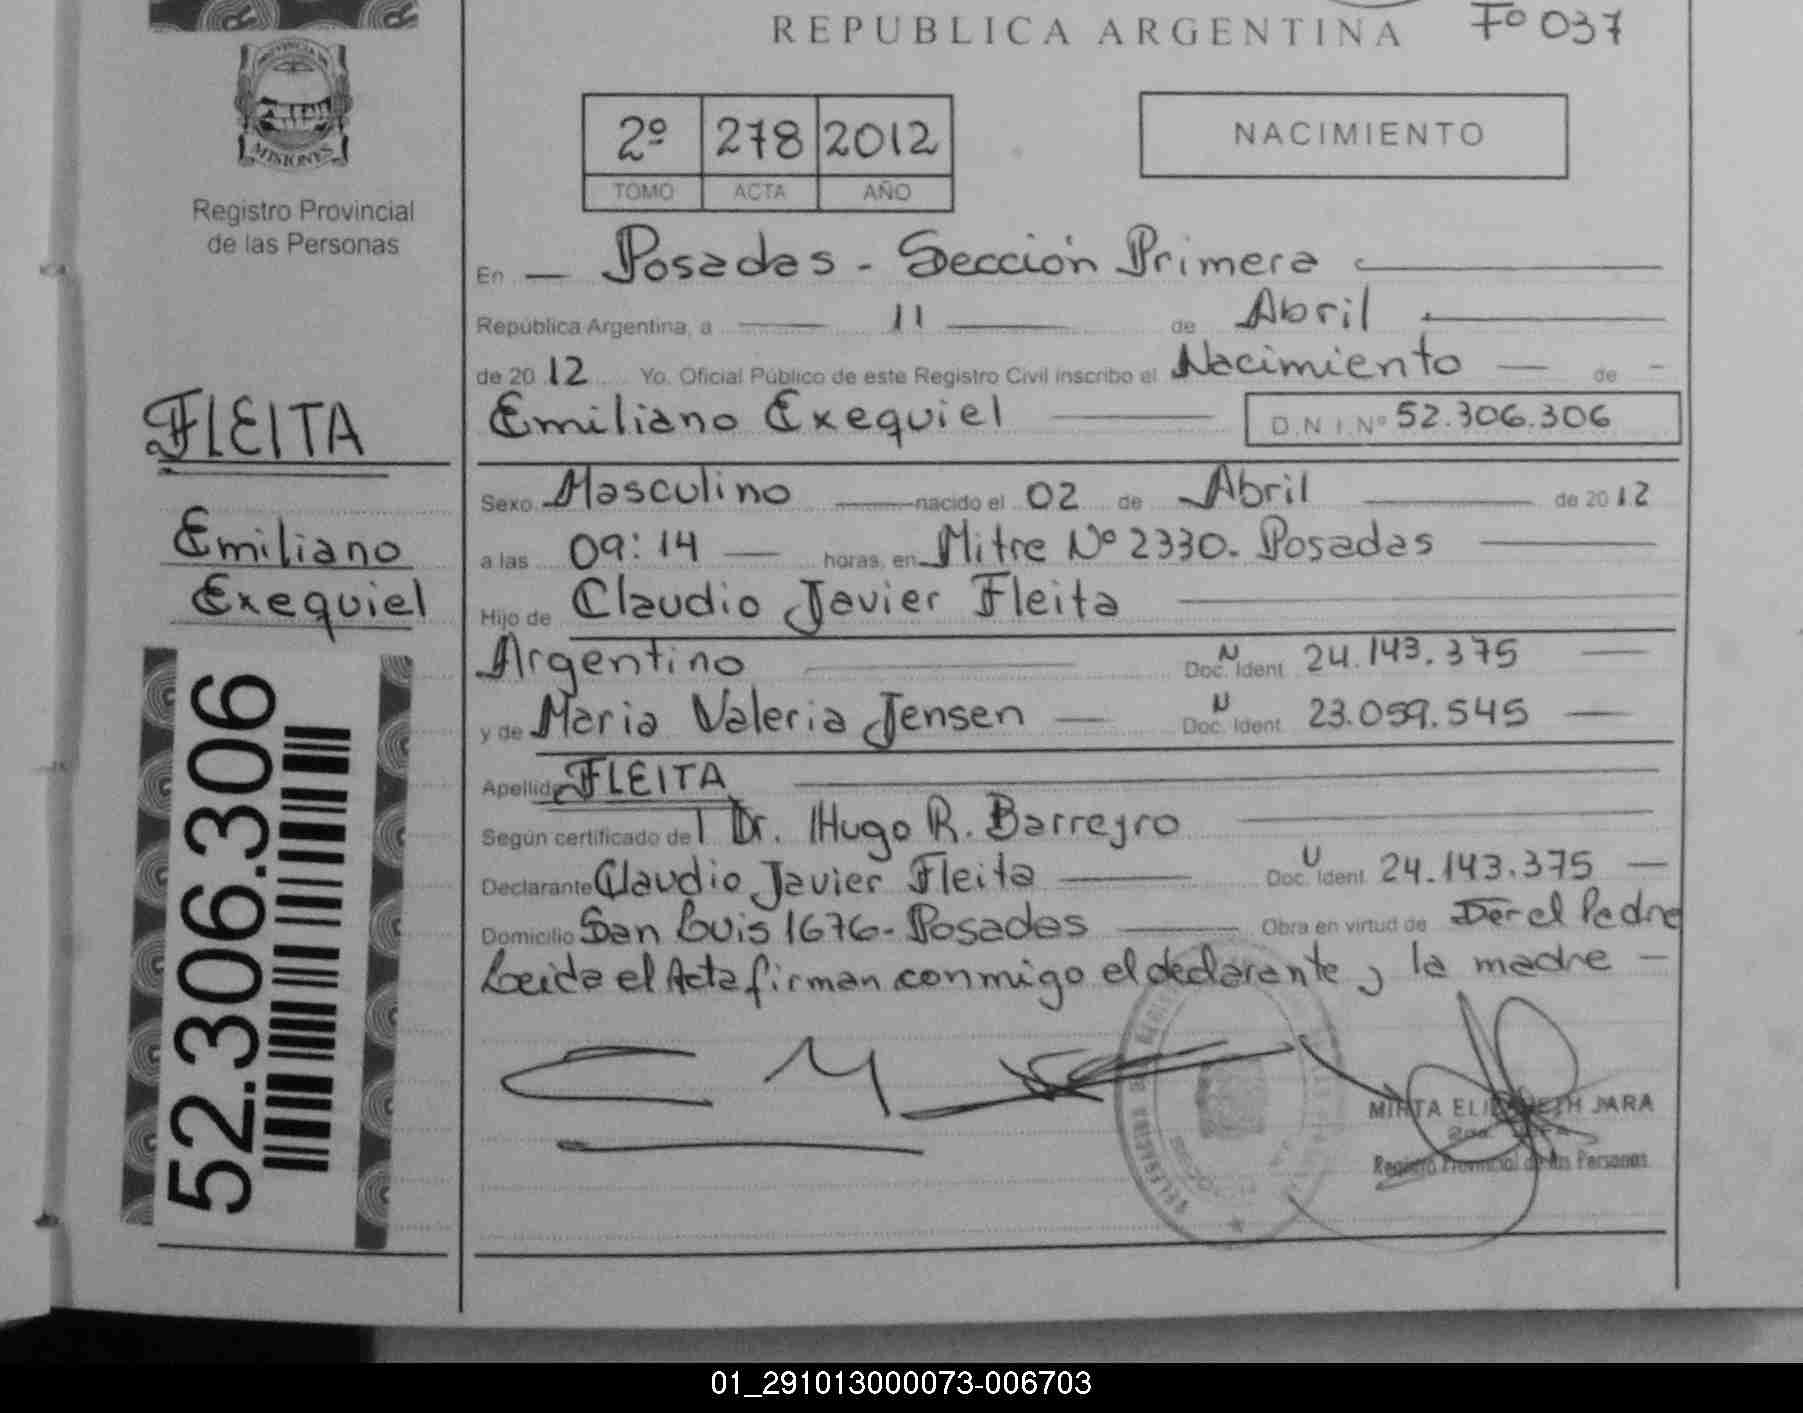 REPUBLICA ARGENTINA Fº 037
MISIONES
Registro Provincial
de las Personas
2º 278 2012
TOMO ACTA AÑO
NACIMIENTO
En — Posadas - Sección Primera
República Argentina, a 11 de Abril
de 2012 Yo. Oficial Público de este Registro Civil inscribo el Nacimiento — de -
Emiliano Exequiel D.N.I.Nº 52.306.306
FLEITA
Emiliano
Exequiel
52.306.306
Sexo Masculino nacido el 02 de Abril de 2012
a las 09:14 — horas, en Mitre Nº 2330. Posadas
Hijo de Claudio Javier Fleita
Argentino Doc. N Ident. 24.143.375
y de Maria Valeria Jensen — Doc. N Ident. 23.059.545 —
Apellido FLEITA
Según certificado del Dr. Hugo R. Barreyro
Declarante Claudio Javier Fleita Doc. U Ident. 24.143.375 —
Domicilio San Luis 1676- Posadas Obra en virtud de Ser el Padre
Leida el Acta firman conmigo el declarante y la madre —
MIRTA ELIZABETH JARA
Registro Provincial de las Personas
01_291013000073-006703